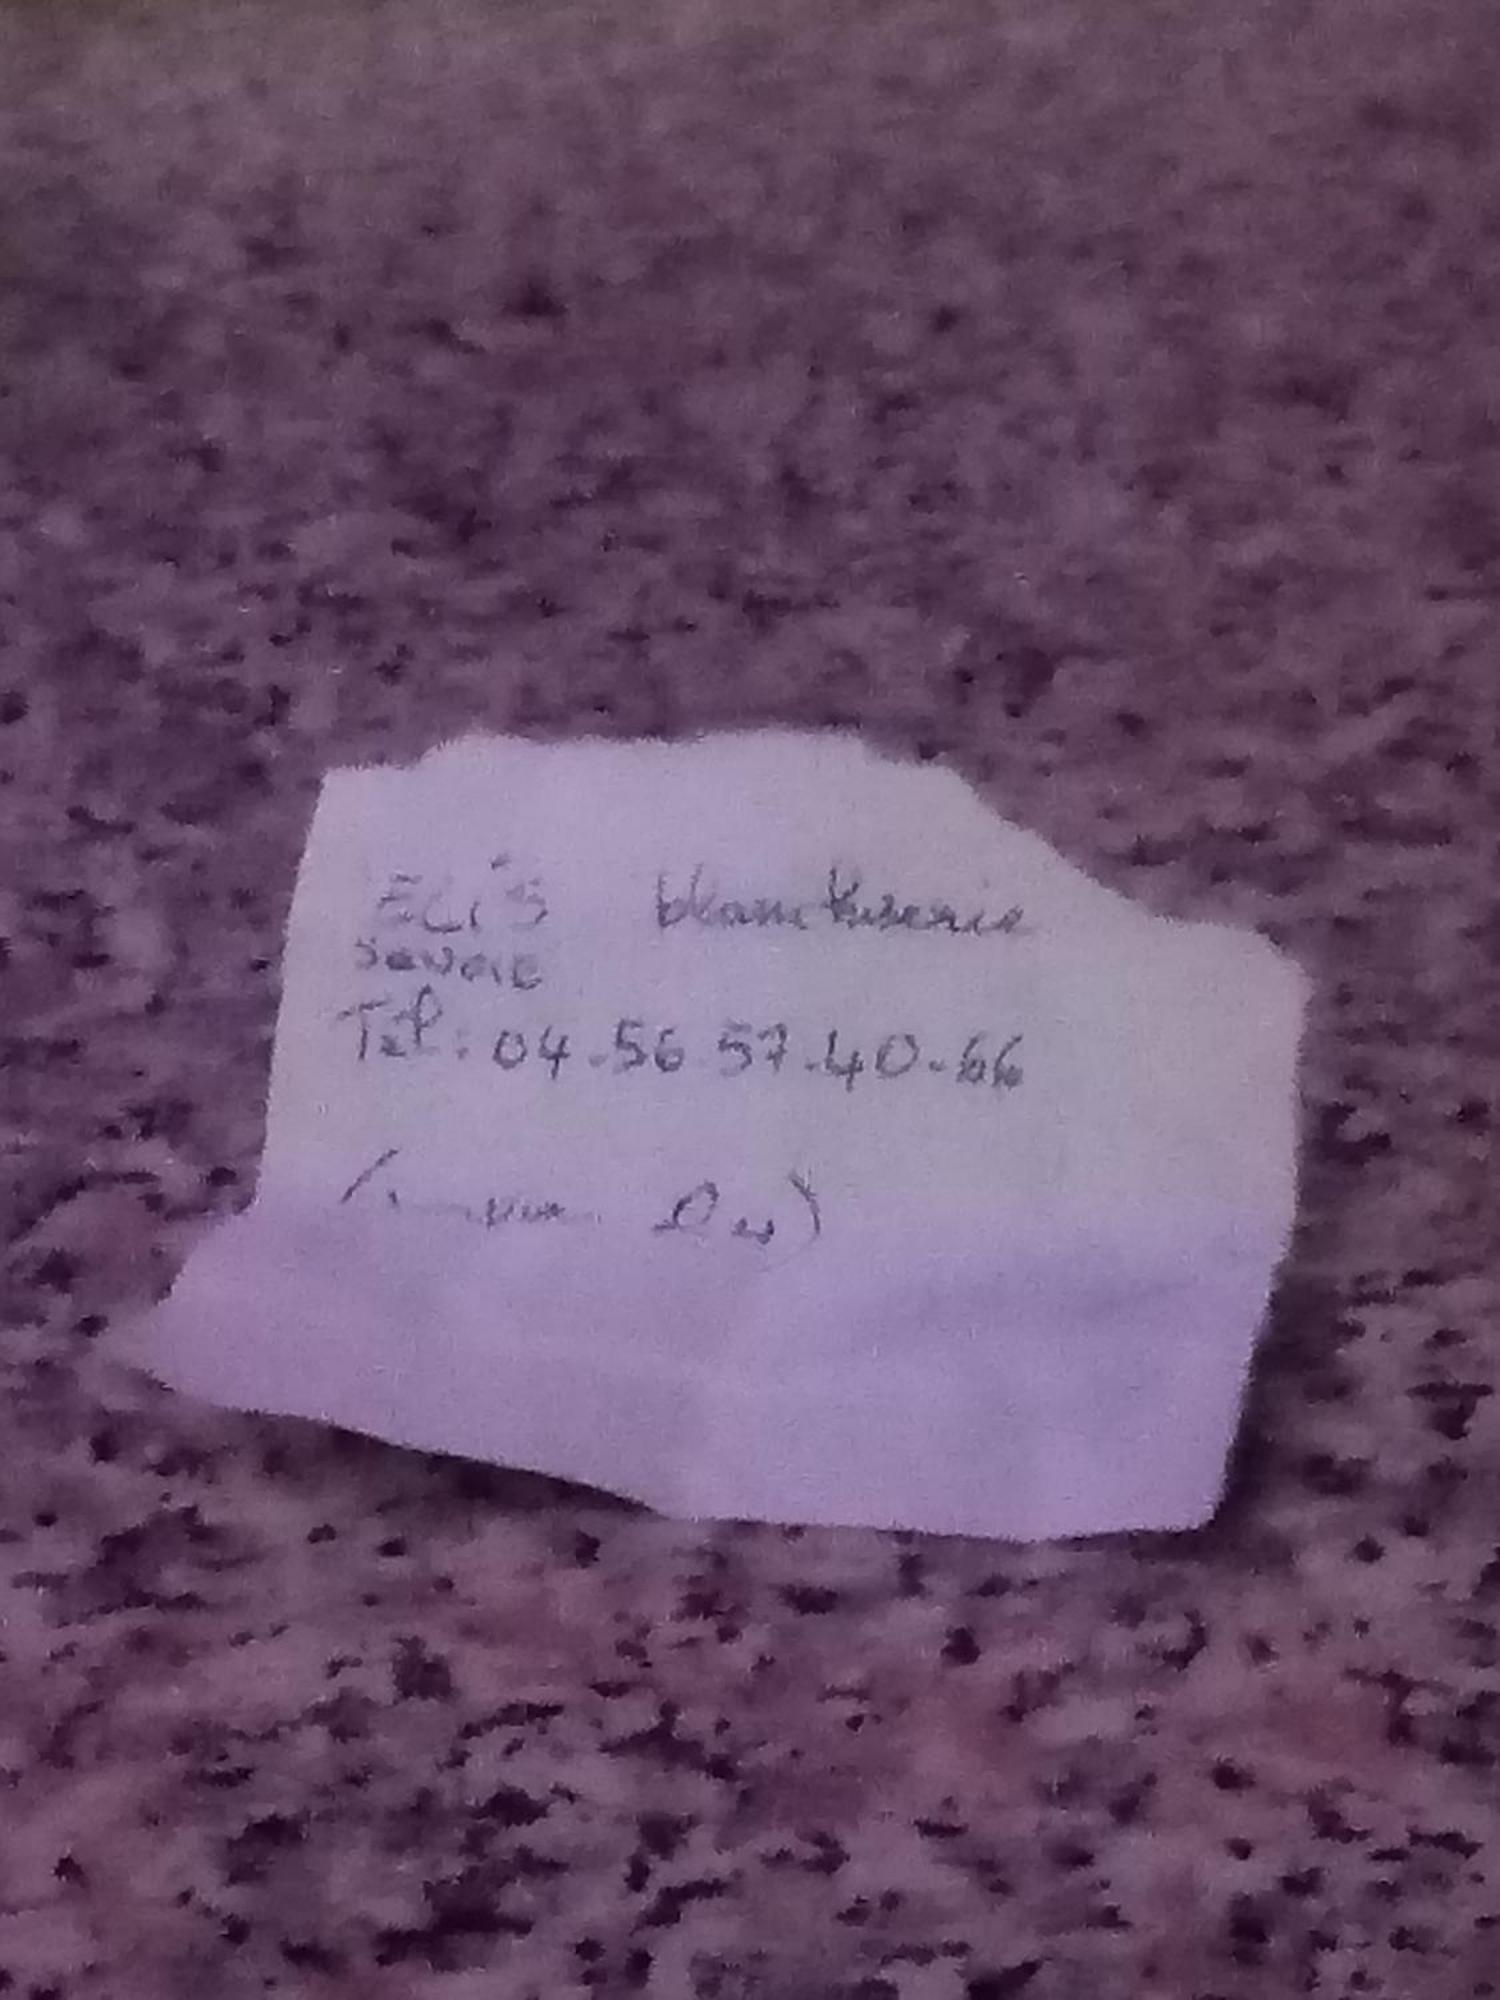 ELIS blanchisserie
Savoie
Tel: 04.56 57.40.66